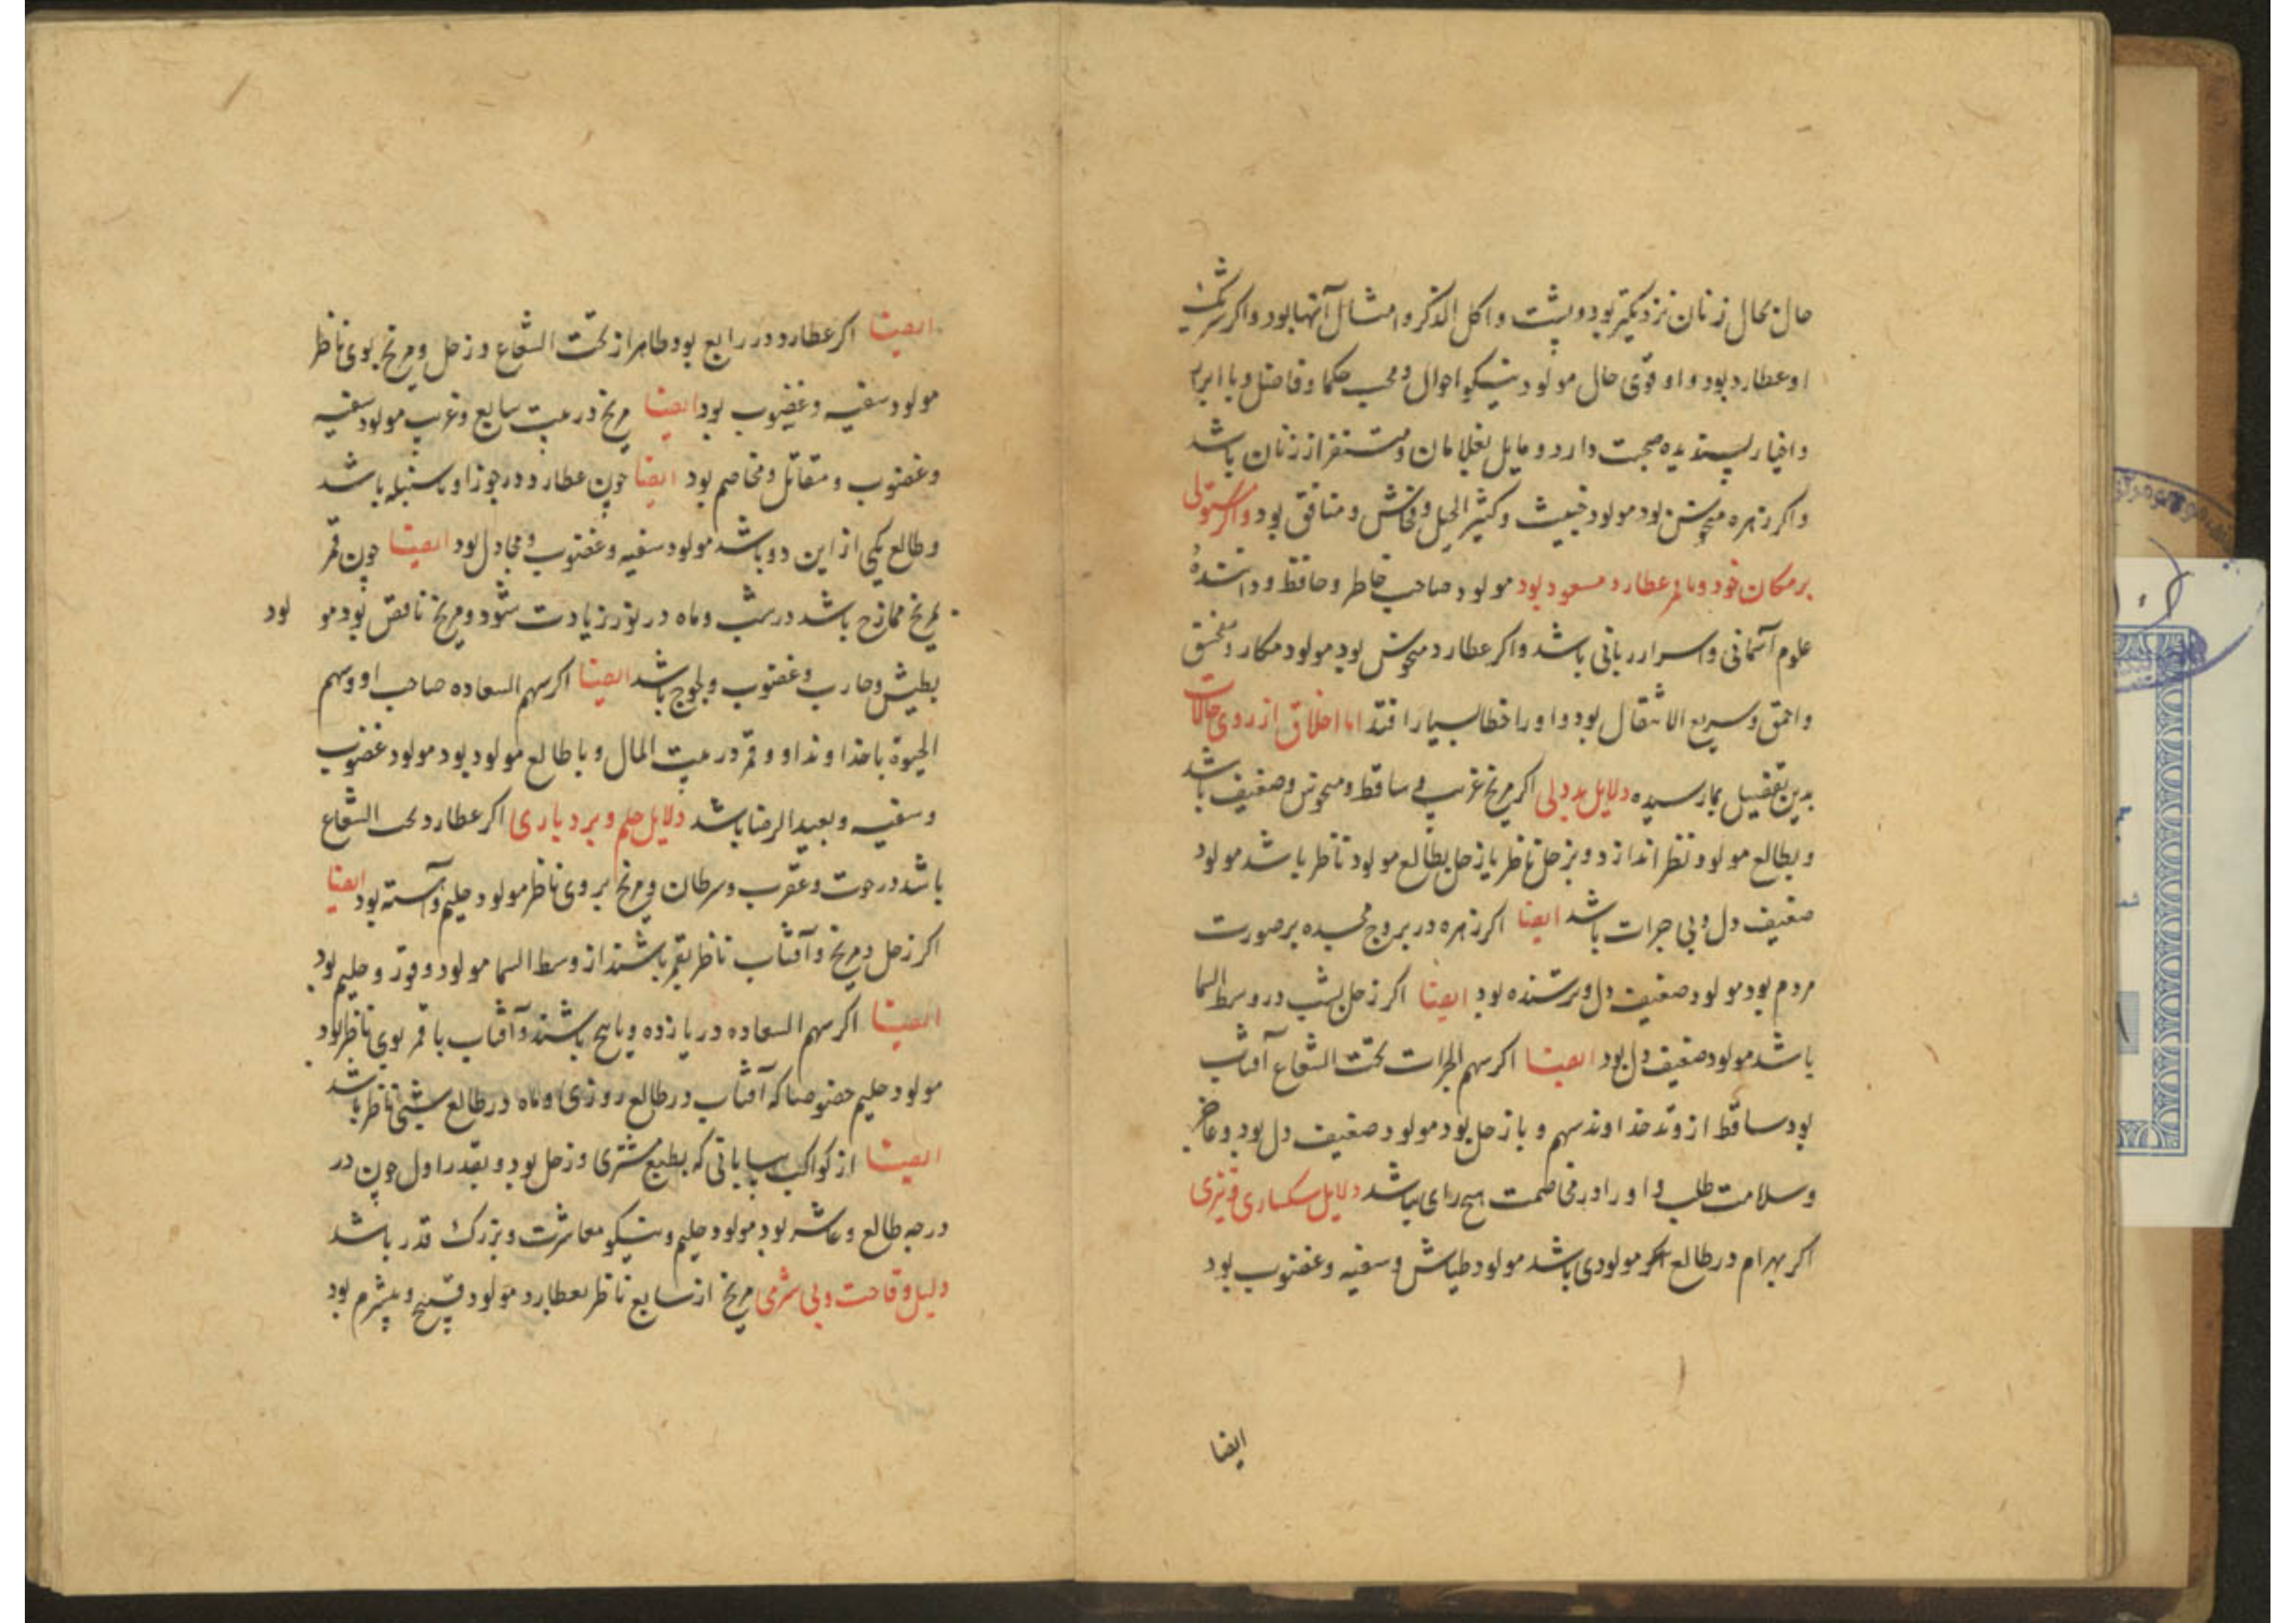 حال بحال زنان نزدیکتر بود و پشت و اکل الذکر و امثال آنها بود و اکر شریک
او عطارد بود و او قوی حال مولود نیکو احوال و محب حکما و فاضل و با ابرار
و اخیار پسندیده صحبت دارد و مایل بغلامان و متنفر از زنان باشد
و اکر زهره منحوس بود مولود خبیث و کثیر الحیل و فحاش و منافق بود و اکر مستولی
بر مکان خود و ماه عطارد مسعود بود مولود صاحب خاطر و حافظ و دانندهٔ
علوم آسمانی و اسرار ربانی باشد و اکر عطارد منحوس بود مولود مکار و
و احمق و سریع الانتقال بود و او را خطا بسیار افتد اما اخلاق از روی حالات
بدین تفصیل بما رسیده دلایل بددلی اکر مریخ غربی ساقط و منحوس و ضعیف باشد
و بطالع مولود نظر اندازد و بزحل ناظر یا زحل بطالع مولود ناظر باشد مولود
ضعیف دل و بی جرات باشد ایضا اکر زهره در بروج مجسده بر صورت
مردم بود مولود ضعیف دل و ترسنده بود ایضا اکر زحل بشب در وسط السما
باشد مولود ضعیف دل بود ایضا اکر سهم الجرات تحت الشعاع آفتاب
بود ساقط از وتد خداوند سهم و با زحل بود مولود ضعیف دل بود و عاجز
و سلامت طلب و او را در مخاصمت هیچ رای نباشد دلایل سبکساری و تیزی
اکر بهرام در طالع اکر مولودی باشد مولود طیاش و سفیه و غضوب بود
ایضا
ایضا اکر عطارد در رابع بود طاهر از تحت الشعاع و زحل و مریخ بوی ناظر
مولود سفیه و غضوب بود ایضا مریخ در بیت سابع و غرب مولود سفیه
و غضوب و مقاتل و مخاصم بود ایضا چون عطارد در جوزا و یا سنبله باشد
و طالع یکی از این دو باشد مولود سفیه و غضوب و مجادل بود ایضا چون قمر
بمریخ ممازج باشد در شب و ماه در نور زیادت شود و مریخ ناقص بود مو لود
بطیش و حارب و غضوب و لجوج باشد ایضا اکر سهم السعاده صاحب او و سهم
الحیوة با خداوند او و قمر در بیت المال و یا طالع مولود بود مولود غضوب
و سفیه و بعید الرضا باشد دلایل حلم و بردباری اکر عطارد تحت الشعاع
باشد در حوت و عقرب و سرطان و مریخ بر وی ناظر مولود حلیم و آهسته بود ایضا
اکر زحل و مریخ و آفتاب ناظر بقمر باشند از وسط السما مولود وقور و حلیم بود
ایضا اکر سهم السعاده در یازده و یا پنج باشند و آفتاب با قمر بوی ناظر بود
مولود حلیم خصوصا که آفتاب در طالع روزی و ماه در طالع شبی ناظر باشد
ایضا از کواکب بیابانی که بطبع مشتری و زحل بود و بقدر اول چون در
درجه طالع و عاشر بود مولود حلیم و نیکو معاشرت و بزرک قدر باشد
دلیل وقاحت و بی شرمی مریخ از سابع ناظر بعطارد مولود قبیح و بیشرم بود